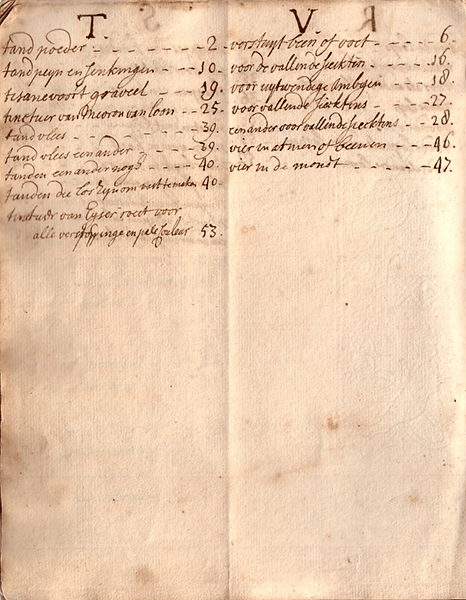 T.
tand poeder - - - - - - 2.
tandpeyn en sinkingen - - - 10.
tisane voort graveel - - - 19.
tinctuer van theoron van loon - - 25.
tand vlees - - - - - - 39.
tand vlees een ander - - - 39.
tanden een ander nogh - - - 40.
tanden die los zyn om vast te maken 40.
tinctuer van Eyser roest voor
alle verstoppinge en pale couleur 53.
V.
verstuyt been of voet - - - - 6.
voor de vallende sieckten - - - 16.
voor uytwendige - - 18.
voor vallende siecktens - - - 27.
een ander voor vallende siecktens - - 28.
vier in armen of beenen - - - 46.
vier in de mondt - - - - - 47.